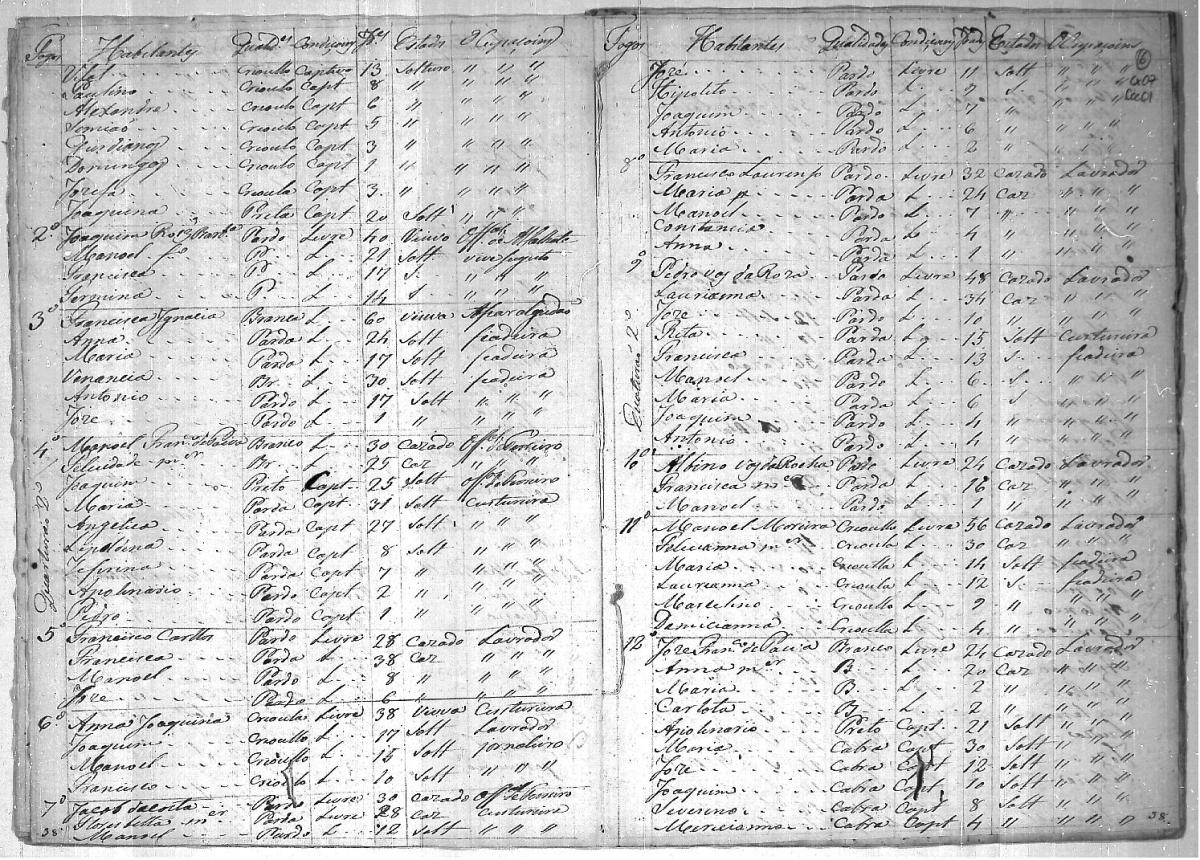 Fogos Habitantes Qualid.es Condicam Id.es Estado Ocupacoins
Vital Crioullo Captivo 13 Solteiro " " "
Paulino Crioulo Capt 8 " " " "
Alexandre Crioulo Capt 6 " " " "
Simiaõ Crioulo Capt 5 " " " "
Crioulo Capt 3 " " " "
Domingos Crioulo Capt 1 " " " "
Jozefa Crioula Capt 3 " " " "
Joaquina Preta Capt 20 Solt " " "
2.º Joaquim Pardo Livre 40 Viuvo Off.al de Alfaiate
Manoel P. L. 21 Solt
Francisca P. L. 17 S. " " "
Fermina P. L. 14 S. " " "
3º Francisca Ignacia Branca L. 60 Viuva
Anna Parda L. 24 Solt fiadeira
Maria Parda L. 17 Solt fiadeira
Venancia Br. L. 30 Solt fiadeira
Antonio Pardo L. 17 Solt " " "
Joze Pardo L. 1 " " " "
4º Manoel Fran.co de Paiva Branco L. 30 Cazado Off. de Ferreiro
Felicidade m.er Br. L. 25 Caz " "
Joaquim Preto Capt 25 Solt off.al de Ferreiro
Maria Parda Capt 31 Solt Custureira
Angelica Parda Capt 27 Solt " "
Parda Capt 8 Solt " " "
Parda Capt 7 " " " "
Apolinario Pardo Capt 2 " " " "
Pedro Pardo Capt 1 " " " "
5º Francisco Pardo Livre 28 Cazado Lavrador
Francisca Parda L. 38 Caz " " "
Manoel Pardo L. 8 " " " "
Joze Pardo L. 6 " " " "
6º Anna Joaquina Crioula Livre 38 Viuva Custureira
Joaquim Crioullo L. 17 Solt Lavrador
Manoel Crioullo L. 15 Solt Jornaleiro
Francisco Crioulo L. 10 Solt " " "
7º Jacob da Costa Pardo Livre 30 Cazado Off.al de Ferreiro
m.er Parda Livre 28 Caz Custureira
Manoel Pardo L. 12 Solt " " "
38
Quarteiraõ 2º
Fogos Habitantes Qualidades Condicam Id.es Estado Ocupacoins
6
Joze Pardo Livre 11 Solt " " "
Hipolito Pardo L. 9 S. " " "
Joaquim Pardo L. 7 " " " "
Antonio Pardo L. 6 " " " "
Maria Parda L. 2 " " " "
8º Francisco Laurenço Pardo Livre 32 Cazado Lavrador
Maria Parda L. 24 Caz " " "
Manoel Pardo L. 7 " " " "
Constancia Parda L. 4 " " " "
Anna Parda L. 1 " " " "
9º Pedro da Roza Pardo Livre 48 Cazado Lavrador
Laurianna Parda L. 34 Caz " " "
Joze Pardo L. 10 " " " "
Rita Parda L. 15 Solt Custureira
Francisca Parda L. 13 S. fiadeira
Manoel Pardo L. 6 S. " " "
Maria Parda L. 6 S " " "
Joaquina Parda L. 4 " " " "
Antonio Pardo L. 4 " " " "
10º Albino da Rocha Pardo Livre 24 Cazado Lavrador
Francisca m.er Parda L. 16 Caz " "
Manoel Pardo L. 1 " " "
11º Manoel Moreira Crioullo Livre 56 Cazado Lavrador
Felicianna m.er Crioula L. 30 Caz " "
Maria Crioulla L. 14 Solt fiadeira
Laurianna Crioula L. 12 S. fiadeira
Marcelino Crioullo L. 9 " " " "
Demicianna Crioulla L. 4 " " " "
12º Joze Fran.co de Paiva Branco Livre 24 Cazado Lavrador
Anna m.er B. L. 20 Caz " " "
Maria B. L. 2 " " " "
Carlota B. L. 2 " " " "
Apolinario Preto Capt 21 Solt " " "
Maria Cabra Capt 30 Solt " " "
Joze Cabra Capt 12 Solt " " "
Joaquim Cabra Capt 10 Solt " " "
Severino Cabra Capt 8 Solt " " "
Mircianna Cabra Capt 4 " " " "
38
Quarteiraõ 2º